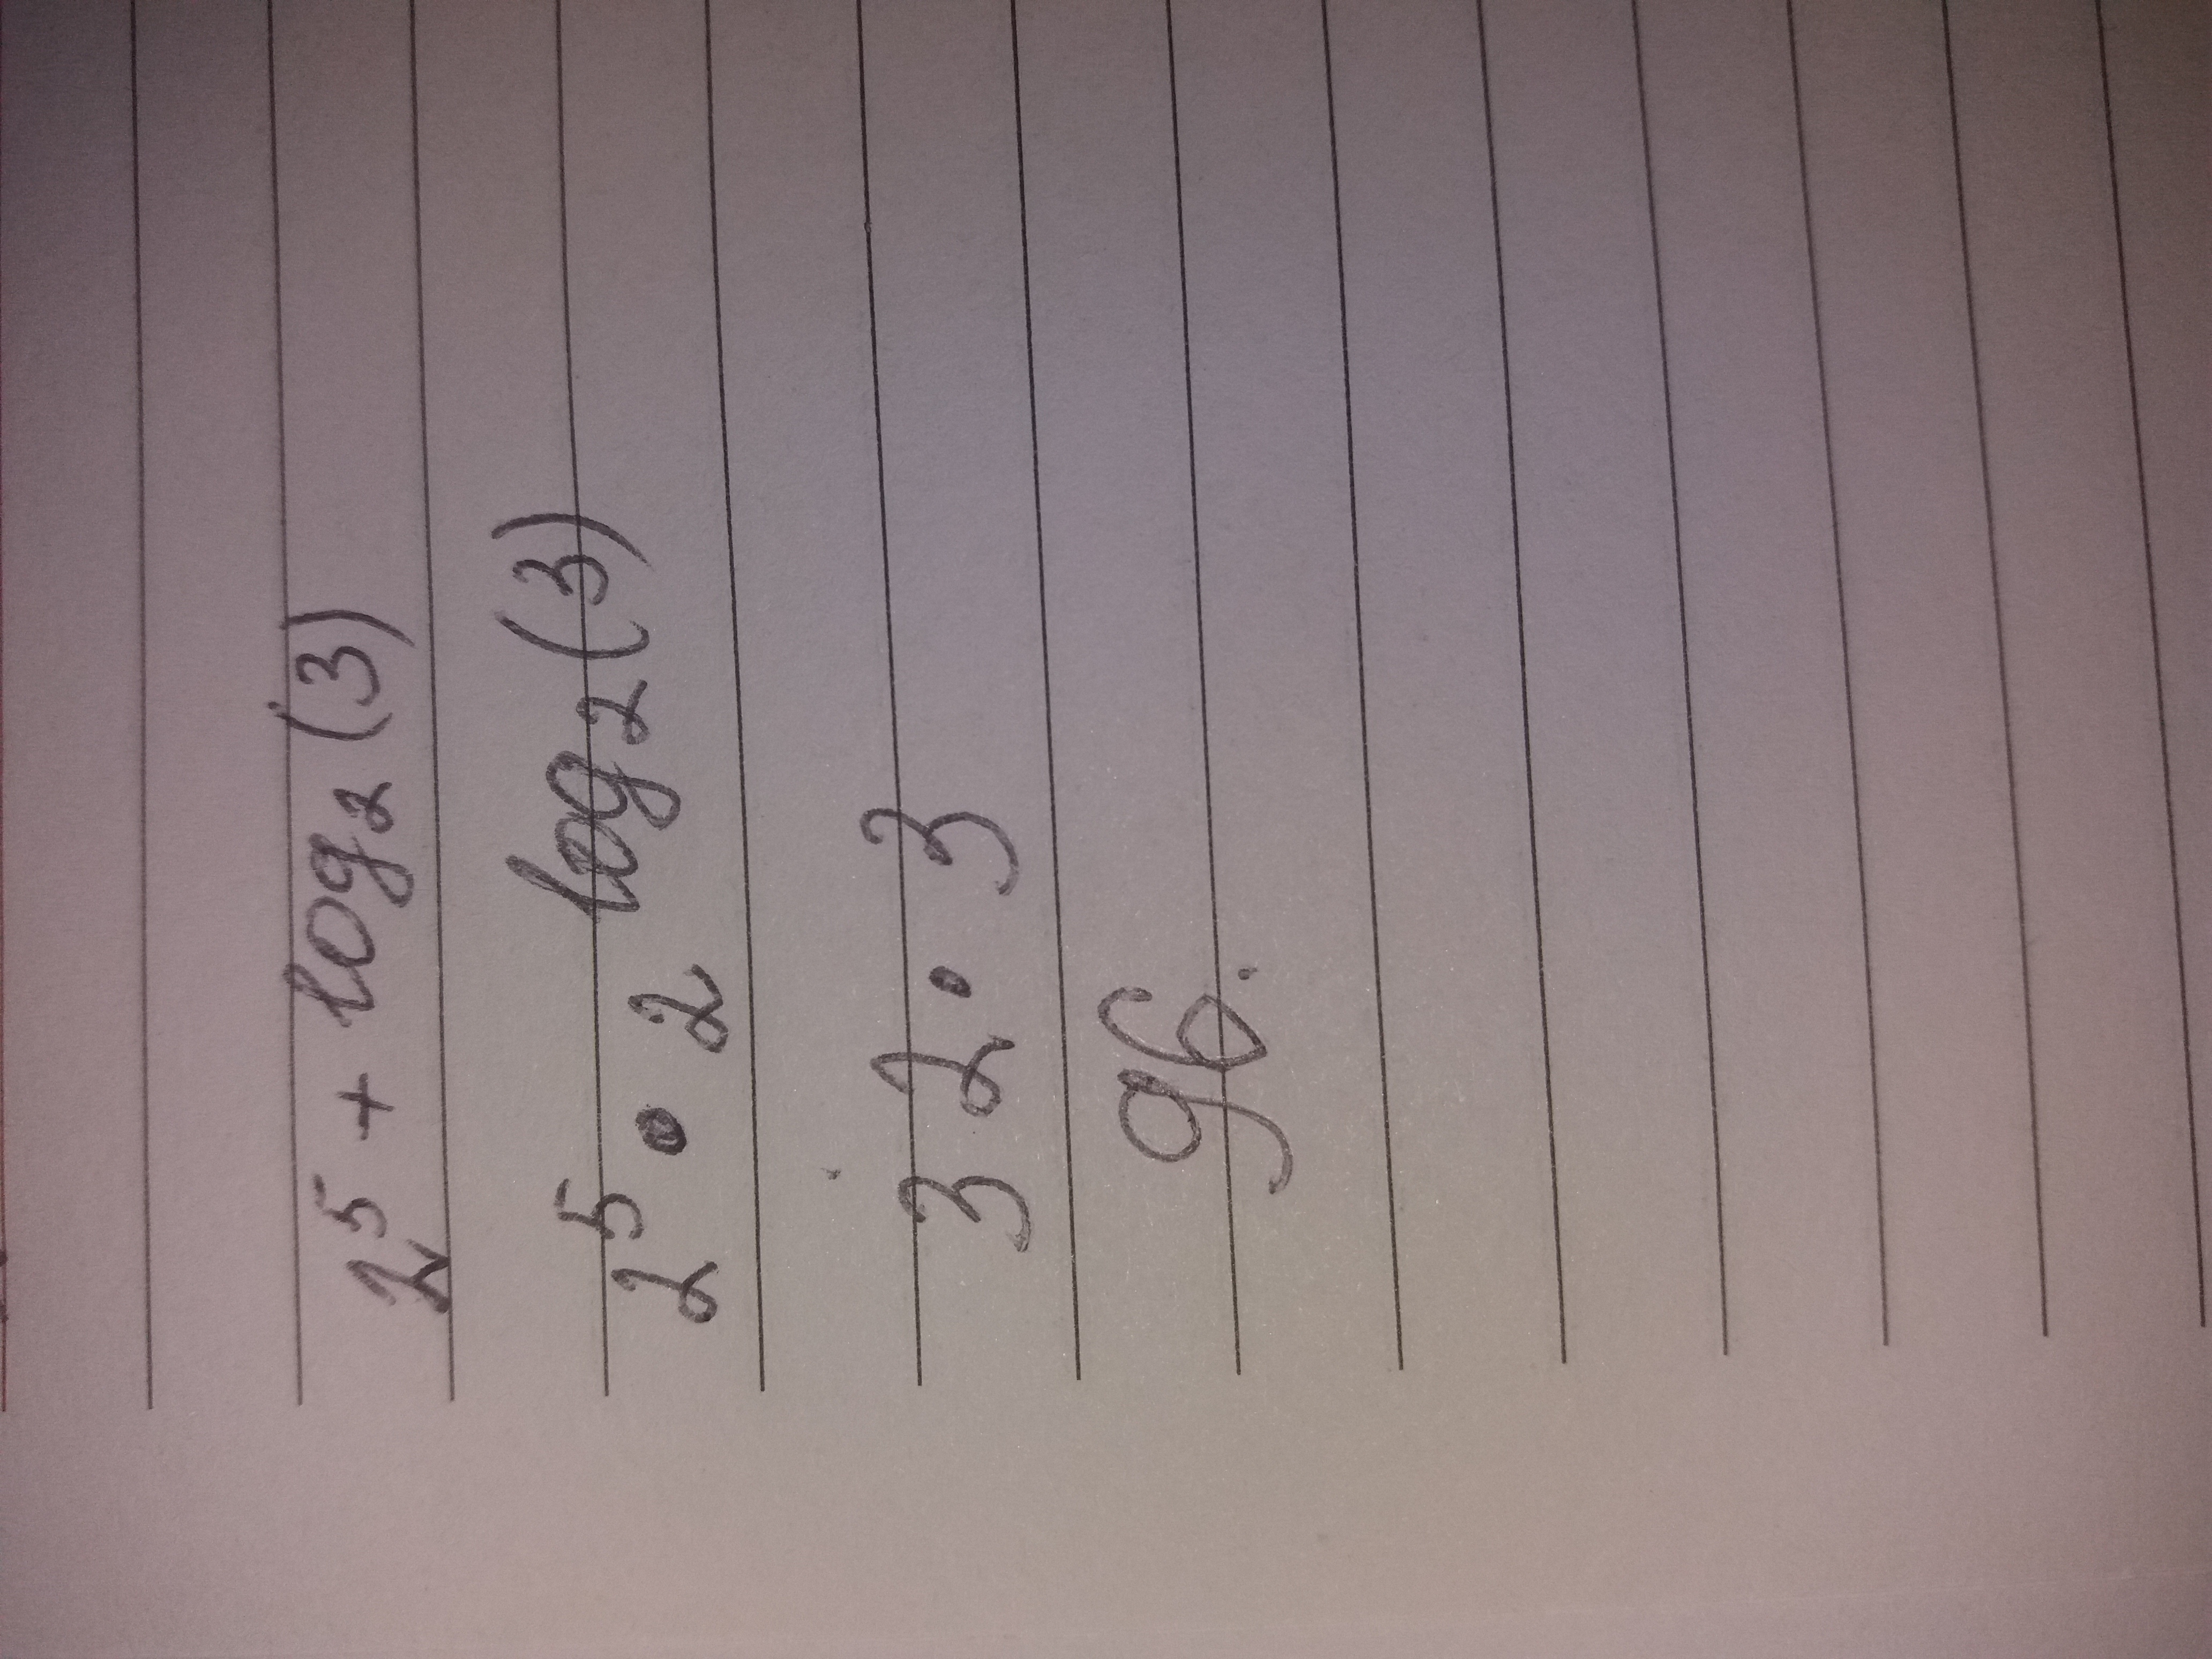 2⁵ + log₂(3)
2⁵ • 2 log₂(3)
32 • 3
96.